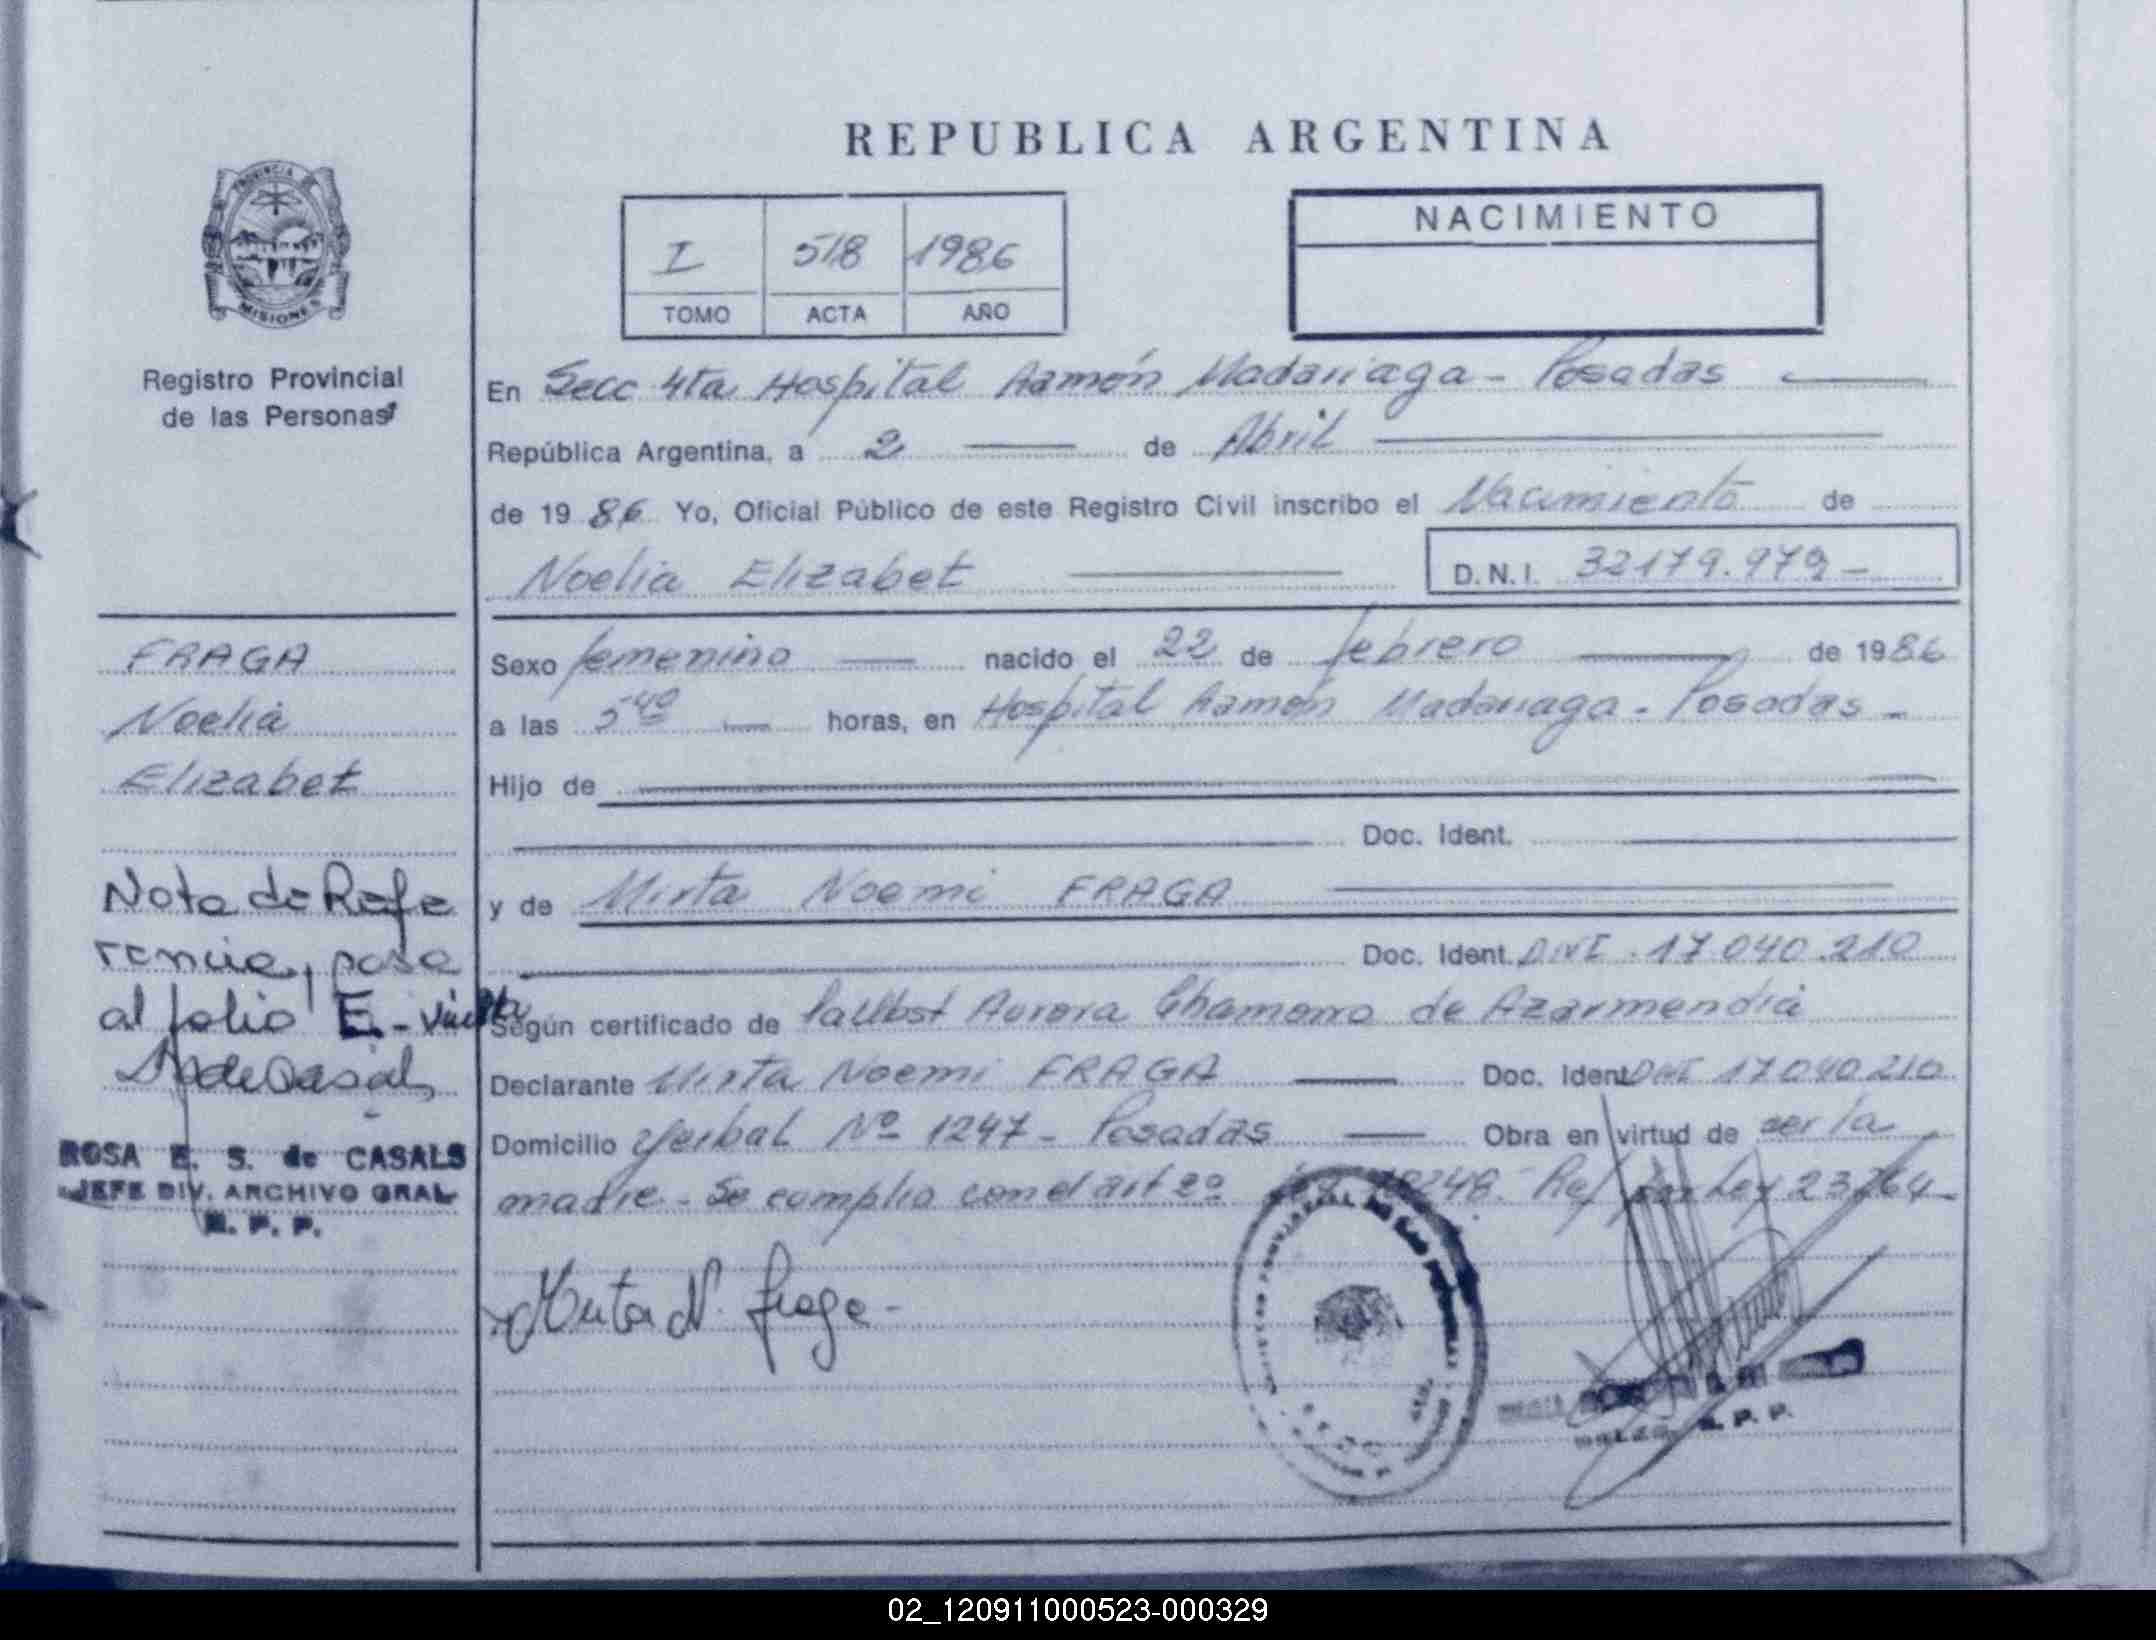 REPUBLICA ARGENTINA
PROVINCIA DE
MISIONES
Registro Provincial
de las Personas
I 518 1986
TOMO ACTA AÑO
NACIMIENTO
En Secc 4ta Hospital Ramón Madariaga - Posadas
República Argentina, a 2 de Abril
de 1986 Yo, Oficial Público de este Registro Civil inscribo el Nacimiento de
Noelia Elizabet D.N.I. 32179.979-
FRAGA
Noelia
Elizabet
Sexo femenino nacido el 22 de febrero de 1986
a las 5 40 horas, en Hospital Ramón Madariaga - Posadas -
Hijo de
Doc. Ident.
y de Mirta Noemi FRAGA
Doc. Ident. DNI 17.040.210
Según certificado de Aurora Chamorro de Azarmendia
Declarante Mirta Noemi FRAGA Doc. Ident DNI 17040210
Domicilio Yerbal Nº 1247 - Posadas Obra en virtud de ser la
madre - Se cumplio con el art 2º 18248. Ref por Ley 23264-
Mirta N. Fraga -
Nota de Refe
rencia, pasa
al folio E. - vuelta
ROSA E. S. de CASALS
JEFE DIV. ARCHIVO GRAL
R. P. P.
R. P. P.
02_120911000523-000329